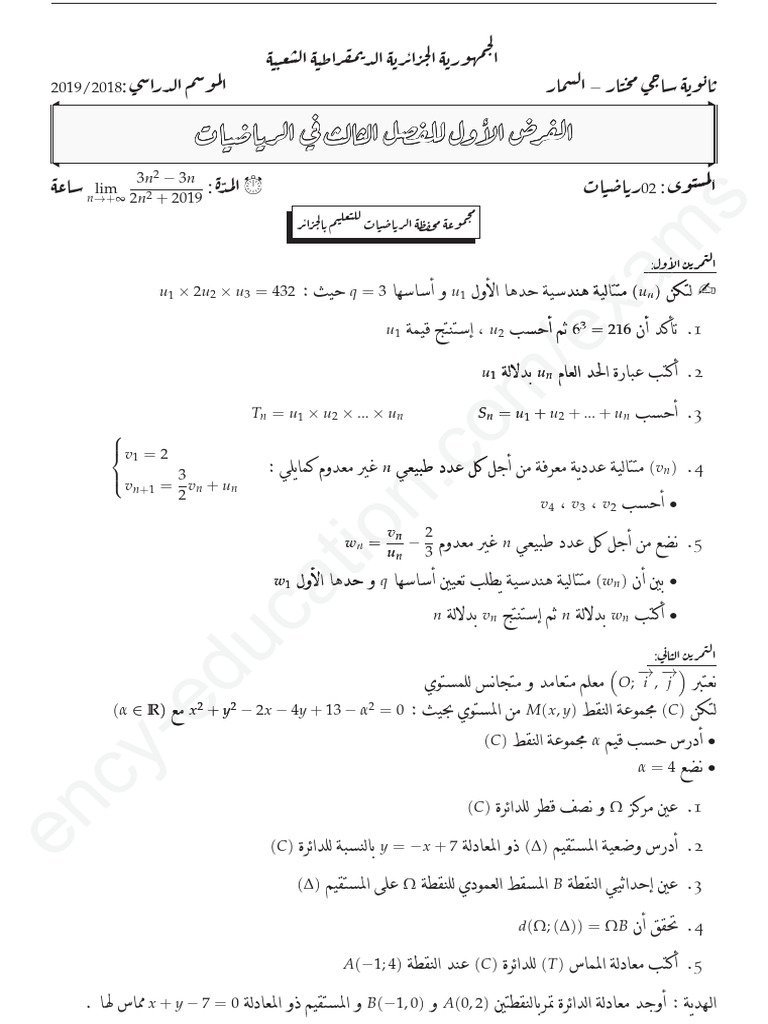 الجمهورية الجزائرية الديمقراطية الشعبية
ثانوية ساجي مختار – السمار الموسم الدراسي: 2019/2018
الفرض الأول للفصل الثالث في الرياضيات
المستوى: 02رياضيات المدّة: lim n→+∞ (3n² − 3n)/(2n² + 2019) ساعة
مجموعة محفظة الرياضيات للتعليم بالجزائر
التمرين الأول:
لتكن (uₙ) متتالية هندسية حدها الأول u₁ و أساسها q = 3 حيث : u₁ × 2u₂ × u₃ = 432
1. تأكد أن 6³ = 216 ثم أحسب u₂ ، إستنتج قيمة u₁
2. أكتب عبارة الحد العام uₙ بدلالة u₁
3. أحسب Sₙ = u₁ + u₂ + ... + uₙ Tₙ = u₁ × u₂ × ... × uₙ
4. (vₙ) متتالية عددية معرفة من أجل كل عدد طبيعي n غير معدوم كمايلي : { v₁ = 2
vₙ₊₁ = 3/2 vₙ + uₙ
• أحسب v₂ ، v₃ ، v₄
5. نضع من أجل كل عدد طبيعي n غير معدوم wₙ = vₙ/uₙ − 2/3
• بين أن (wₙ) متتالية هندسية يطلب تعيين أساسها q و حدها الأول w₁
• أكتب wₙ بدلالة n ثم إستنتج vₙ بدلالة n
التمرين الثاني:
نعتبر (O; i⃗, j⃗) معلم متعامد و متجانس للمستوي
لتكن (C) مجموعة النقط M(x, y) من المستوي بحيث : x² + y² − 2x − 4y + 13 − α² = 0 مع (α ∈ ℝ)
• أدرس حسب قيم α مجموعة النقط (C)
• نضع α = 4
1. عين مركز Ω و نصف قطر للدائرة (C)
2. أدرس وضعية المستقيم (Δ) ذو المعادلة y = −x + 7 بالنسبة للدائرة (C)
3. عين إحداثيي النقطة B المسقط العمودي للنقطة Ω على المستقيم (Δ)
4. تحقق أن d(Ω; (Δ)) = ΩB
5. أكتب معادلة المماس (T) للدائرة (C) عند النقطة A(−1; 4)
الهدية : أوجد معادلة الدائرة تمربالنقطتين A(0, 2) و B(−1, 0) و المستقيم ذو المعادلة x + y − 7 = 0 مماس لها .
ency-education.com/exams